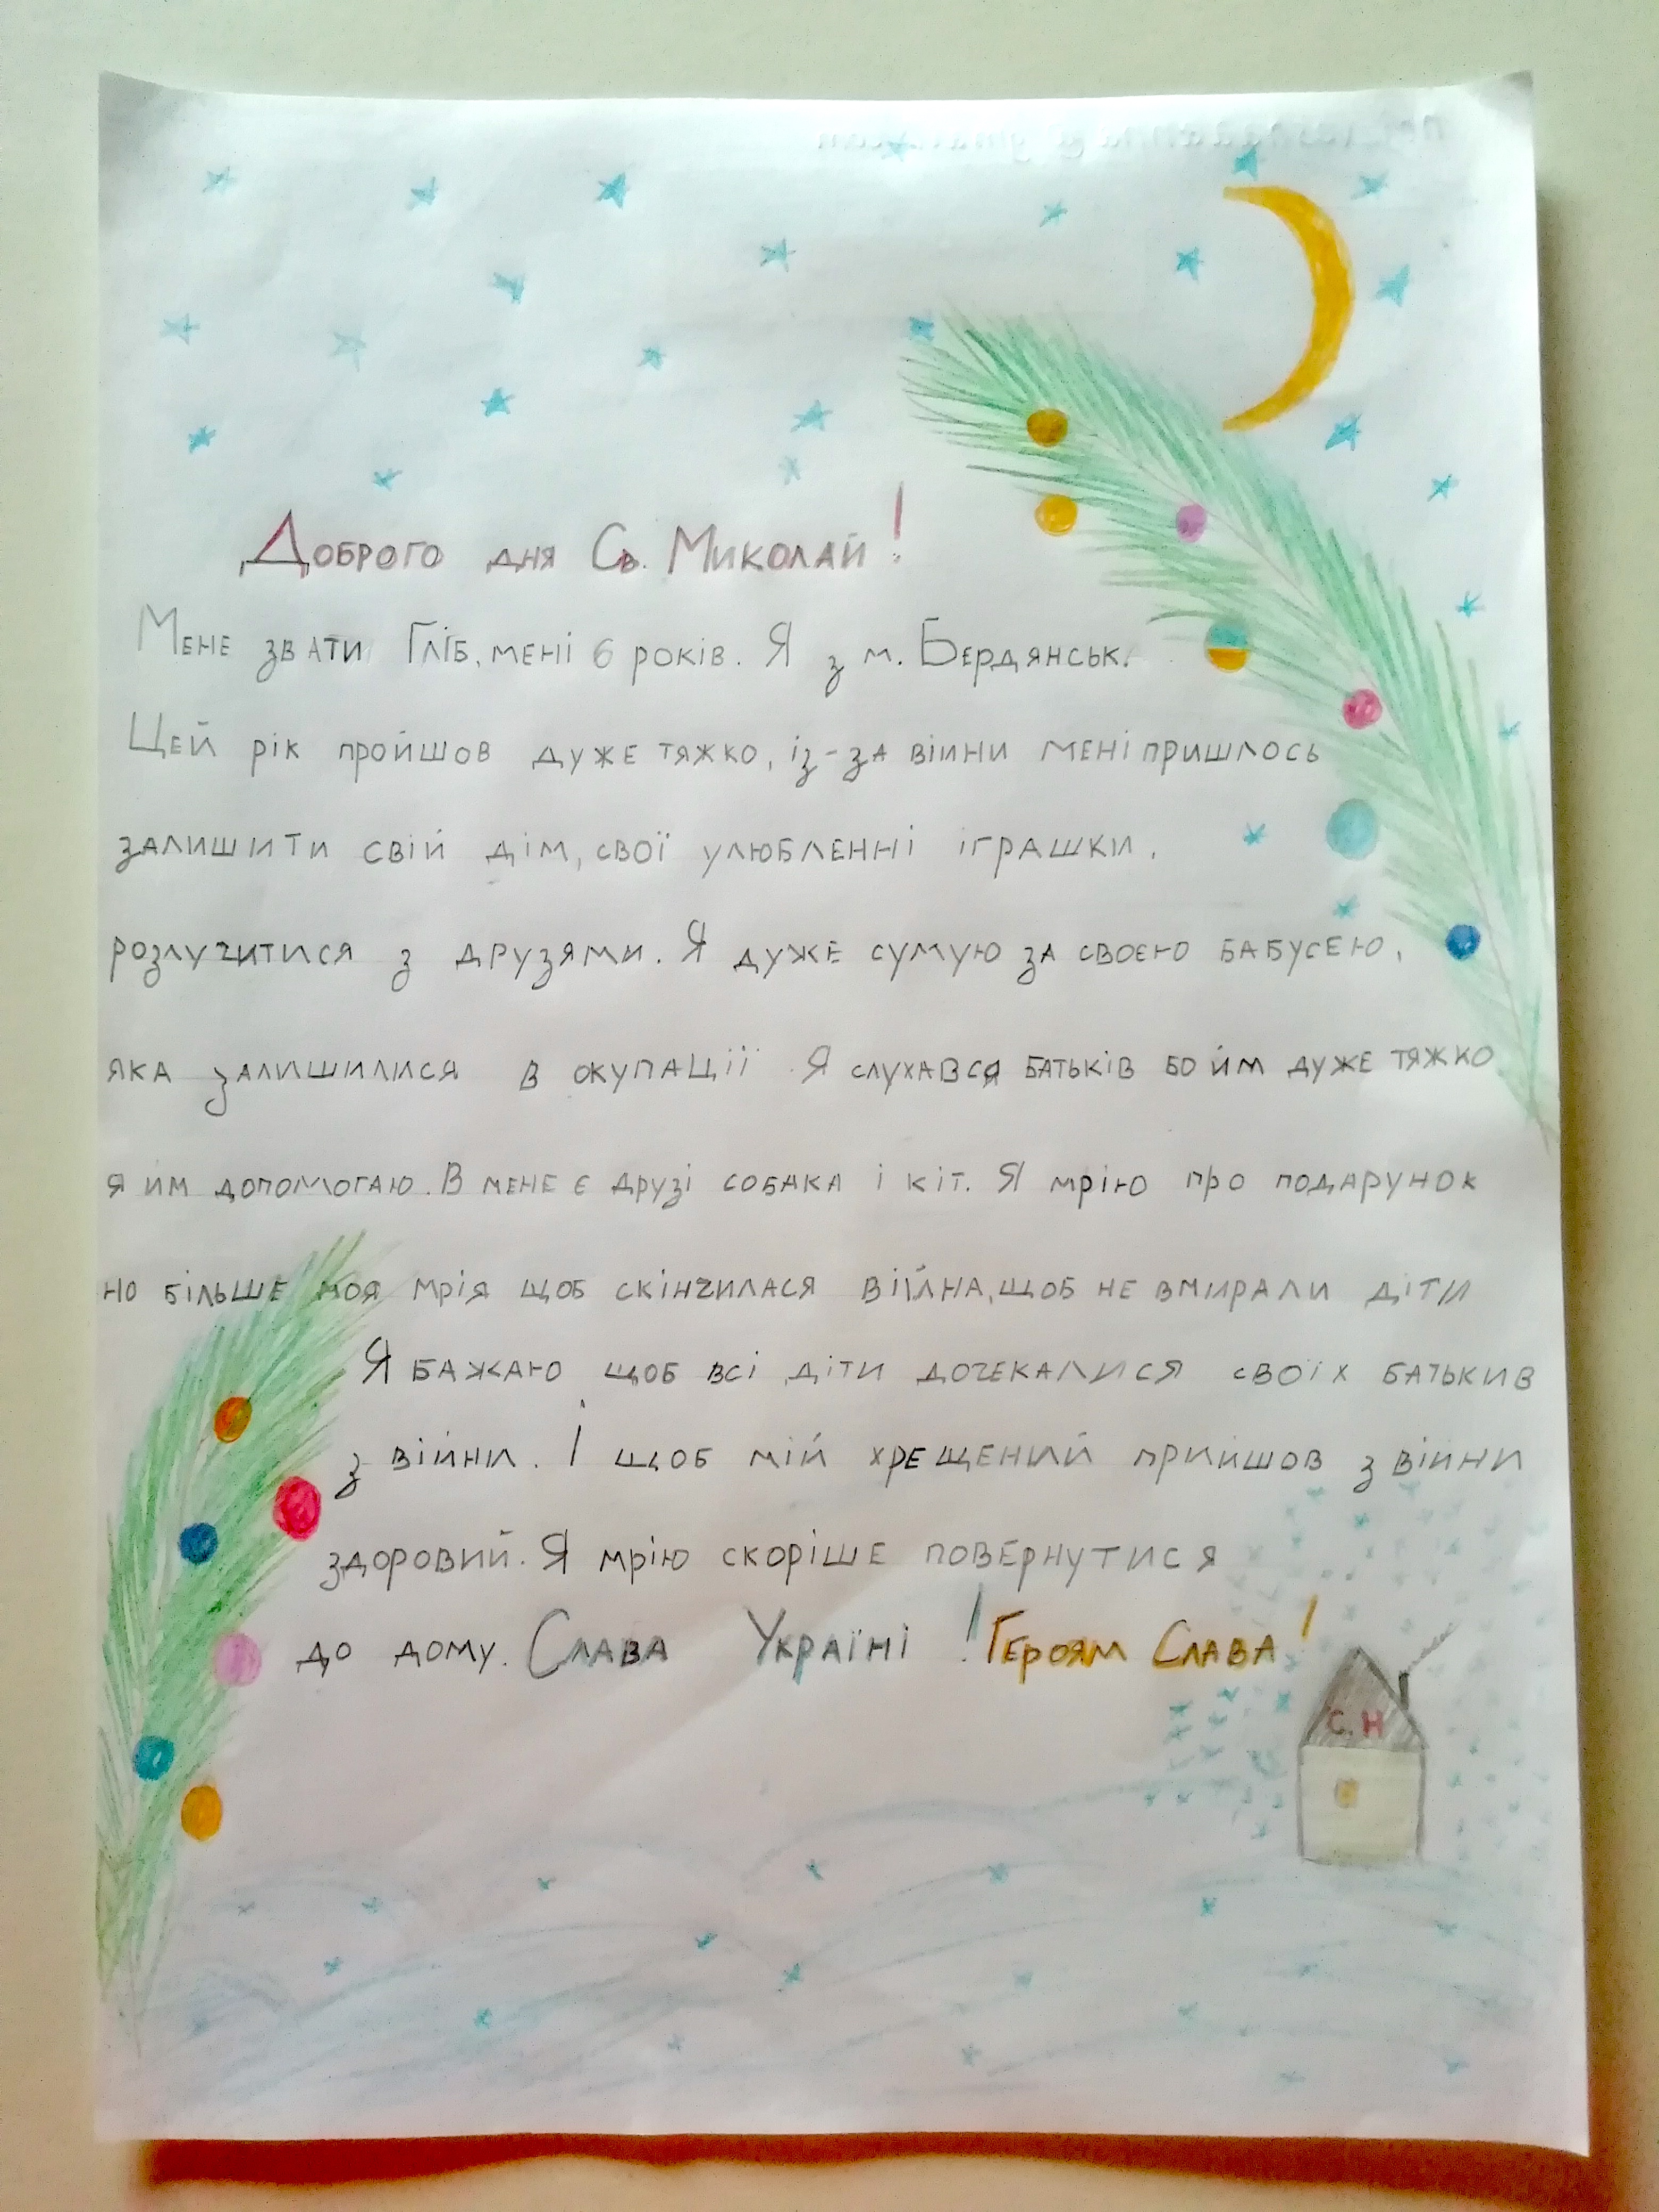 Доброго дня Св. Миколай!
Мене звати Гліб, мені 6 років. Я з м. Бердянськ.
Цей рік пройшов дуже тяжко, із-за війни мені пришлось
залишити свій дім, свої улюбленні іграшки.
розлучитися з друзями. Я дуже сумую за своєю бабусею,
яка залишилися в окупації. Я слухався батьків бо їм дуже тяжко
я їм допомогаю. В мене є друзі собака і кіт. Я мрію про подарунок
но більше моя мрія щоб скінчилася війна, щоб не вмирали діти
Я бажаю щоб всі діти дочекалися своїх батькив
з війни. І щоб мій хрещений прийшов з війни
здоровий. Я мрію скоріше повернутися
до дому. Слава Україні! Героям Слава!
С.Н